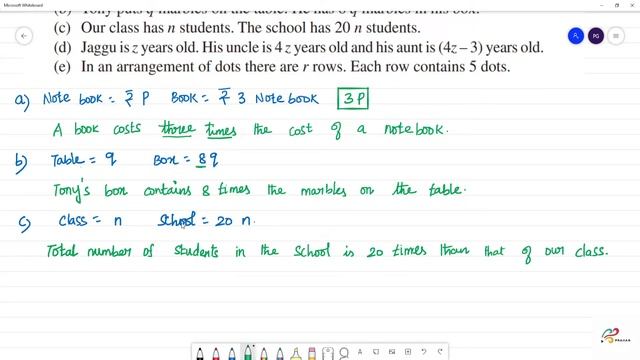 Microsoft Whiteboard
(b) Tony puts q marbles on the table. He has 8 q marbles in his box.
(c) Our class has n students. The school has 20 n students.
(d) Jaggu is z years old. His uncle is 4 z years old and his aunt is (4z – 3) years old.
(e) In an arrangement of dots there are r rows. Each row contains 5 dots.
a) Note book = ₹ P Book = ₹ 3 Notebook 3P
A book costs three times the cost of a notebook.
b) Table = q Box = 8q
Tony's box contains 8 times the marbles on the table.
c) Class = n School = 20 n.
Total number of students in the school is 20 times than that of our class.
PG